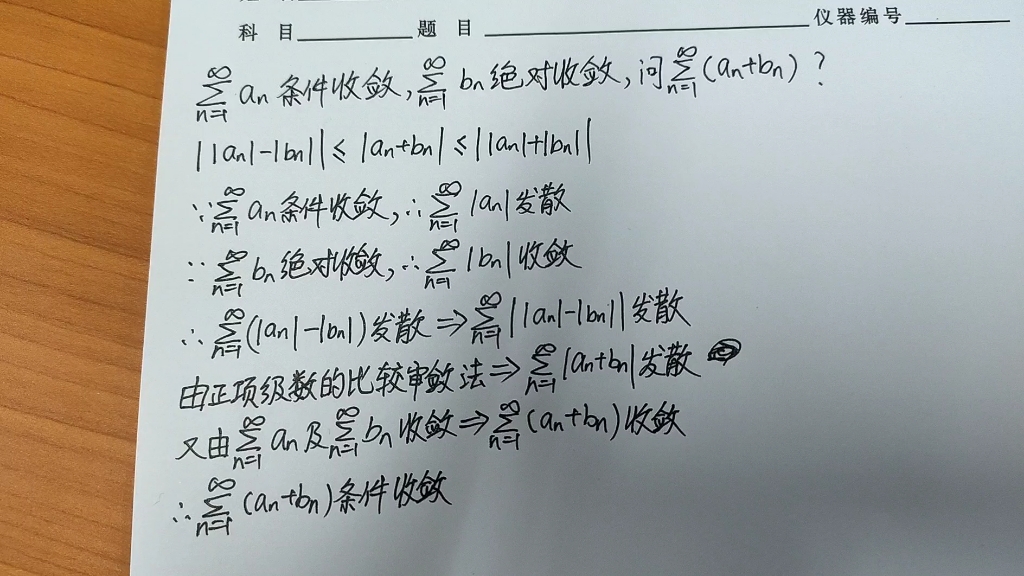 科 目 题 目 仪器编号
∞∑n=1 an 条件收敛, ∞∑n=1 bn 绝对收敛, 问 ∞∑n=1 (an+bn) ?
||an|-|bn|| ≤ |an+bn| ≤ ||an|+|bn||
∵ ∞∑n=1 an 条件收敛, ∴ ∞∑n=1 |an| 发散
∵ ∞∑n=1 bn 绝对收敛, ∴ ∞∑n=1 |bn| 收敛
∴ ∞∑n=1 (|an|-|bn|) 发散 ⇒ ∞∑n=1 ||an|-|bn|| 发散
由正项级数的比较审敛法 ⇒ ∞∑n=1 |an+bn| 发散
又由 ∞∑n=1 an 及 ∞∑n=1 bn 收敛 ⇒ ∞∑n=1 (an+bn) 收敛
∴ ∞∑n=1 (an+bn) 条件收敛